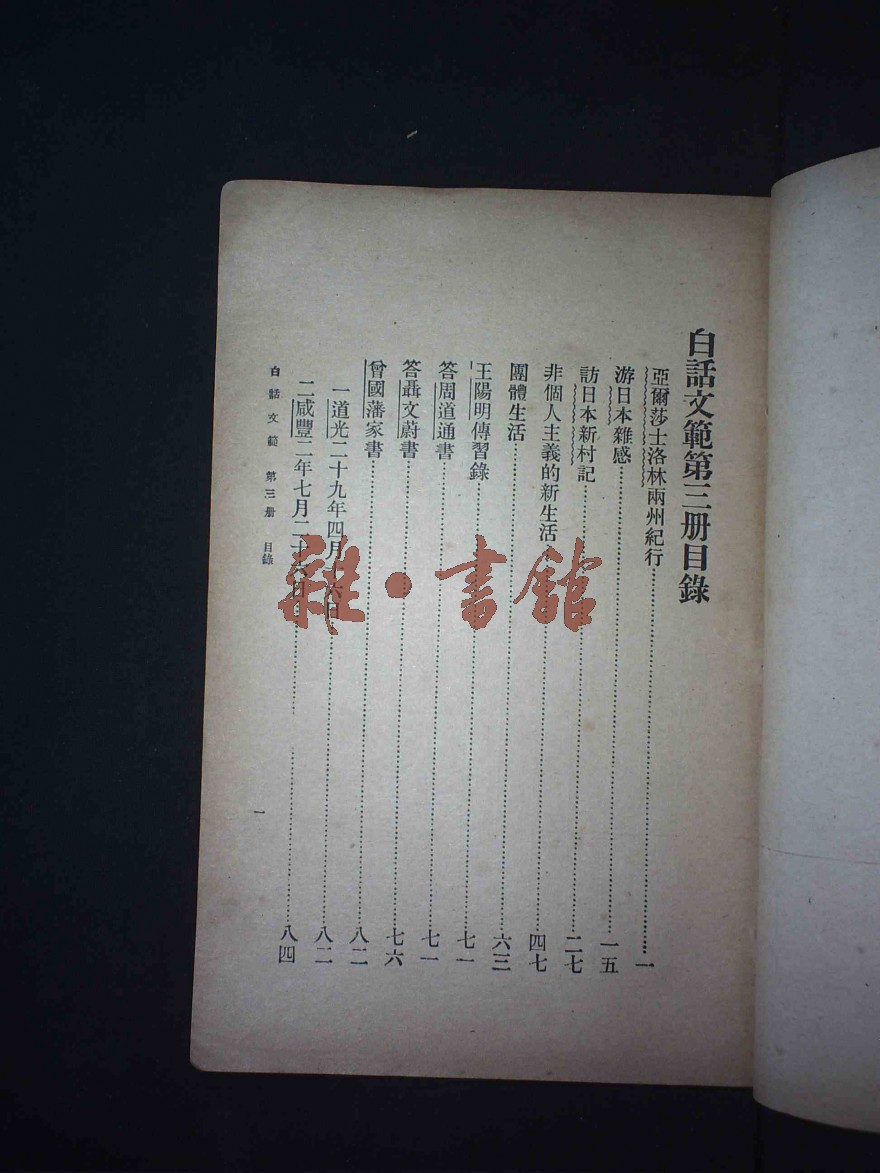 白話文範第三册目錄
亞爾莎士洛林兩州紀行…………一
游日本雜感…………一五
訪日本新村記…………二七
非個人主義的新生活…………四七
團體生活…………六三
王陽明傳習錄…………七一
答周道通書…………七一
答聶文蔚書…………七六
曾國藩家書…………八二
一道光二十九年四月十六日…………八二
二咸豐二年七月二十六日…………八四
白話文範 第三册 目錄 一
雜·書館